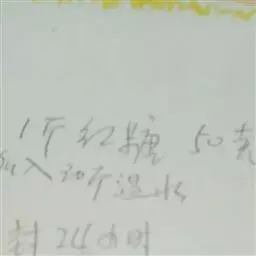 1斤红糖 50克
加入20斤温水
封 24小时